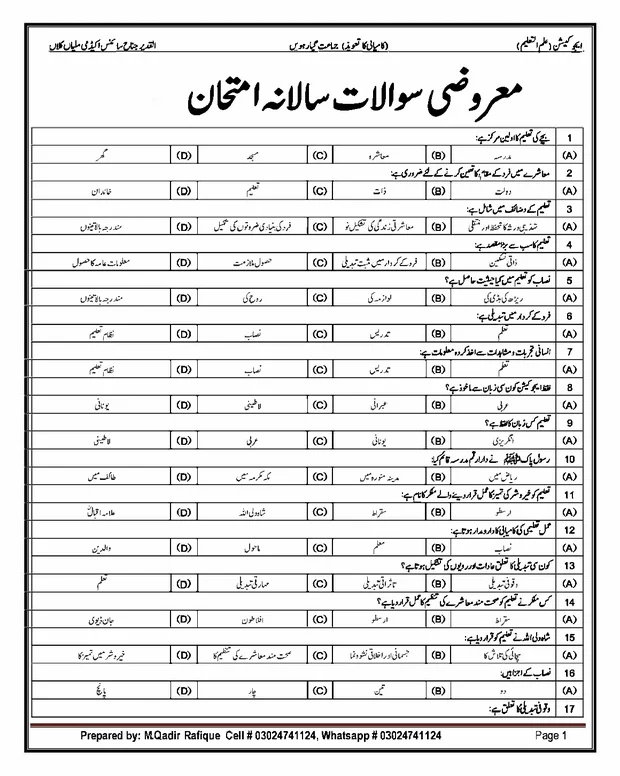 ایجوکیشن (علم التعلیم) (کامیابی کا تعویذ) جماعت گیارہویں القدیر جناح سائنس اکیڈمی ملیاں کلاں
معروضی سوالات سالانہ امتحان
1 بچے کی تعلیم کا اولین مرکز ہے:
(A) مدرسہ (B) معاشرہ (C) مسجد (D) گھر
2 معاشرے میں فرد کے مقام کا تعین کرنے کے لئے ضروری ہے:
(A) دولت (B) ذات (C) تعلیم (D) خاندان
3 تعلیم کے وظائف میں شامل ہے:
(A) تہذیبی ورثہ کا تحفظ اور منتقلی (B) معاشرتی زندگی کی تشکیل نو (C) فرد کی بنیادی ضرورتوں کی تکمیل (D) مندرجہ بالا تینوں
4 تعلیم کا سب سے بڑا مقصد ہے:
(A) ذاتی تسکین (B) فرد کے کردار میں مثبت تبدیلی (C) حصول ملازمت (D) معلومات عامہ کا حصول
5 نصاب کو تعلیم میں کیا حیثیت حاصل ہے؟
(A) ریڑھ کی ہڈی کی (B) لوازمہ کی (C) روح کی (D) مندرجہ بالا تینوں
6 فرد کے کردار میں تبدیلی ہے:
(A) تعلم (B) تدریس (C) نصاب (D) نظام تعلیم
7 انسانی تجربات و مشاہدات سے اخذ کردہ معلومات ہے:
(A) تعلم (B) تدریس (C) نصاب (D) نظام تعلیم
8 لفظ ایجوکیشن کون سی زبان سے ماخوذ ہے؟
(A) عربی (B) عبرانی (C) لاطینی (D) یونانی
9 تعلیم کس زبان کا لفظ ہے؟
(A) انگریزی (B) یونانی (C) عربی (D) لاطینی
10 رسول پاک ﷺ نے دار ارقم مدرسہ قائم کیا:
(A) ریاض میں (B) مدینہ منورہ میں (C) مکہ مکرمہ میں (D) طائف میں
11 تعلیم کو خیر و شر کی تمیز کا عمل قرار دینے والے مفکر کا نام ہے:
(A) ارسطو (B) سقراط (C) شاہ ولی اللہ (D) علامہ اقبالؒ
12 عمل تعلیمی کی کامیابی کا دارومدار ہوتا ہے:
(A) نصاب (B) معلم (C) ماحول (D) والدین
13 کون سی تبدیلی کا تعلق عادات اور رویوں کی تشکیل ہوتا ہے؟
(A) وقوفی تبدیلی (B) تاثراتی تبدیلی (C) مہارتی تبدیلی (D) تعلم
14 کس مفکر نے تعلیم کو صحت مند معاشرے کی تنظیم کا عمل قرار دیا ہے؟
(A) سقراط (B) ارسطو (C) افلاطون (D) جان ڈیوی
15 شاہ ولی اللہ نے تعلیم کو قرار دیا ہے:
(A) سچائی کی تلاش کا (B) جسمانی اور اخلاقی نشوونما (C) صحت مند معاشرے کی تنظیم کا (D) خیر و شر میں تمیز کا
16 نصاب کے اجزا ہیں:
(A) دو (B) تین (C) چار (D) پانچ
17 وقوفی تبدیلی کا تعلق ہے:
Prepared by: M.Qadir Rafique Cell # 03024741124, Whatsapp # 03024741124 Page 1